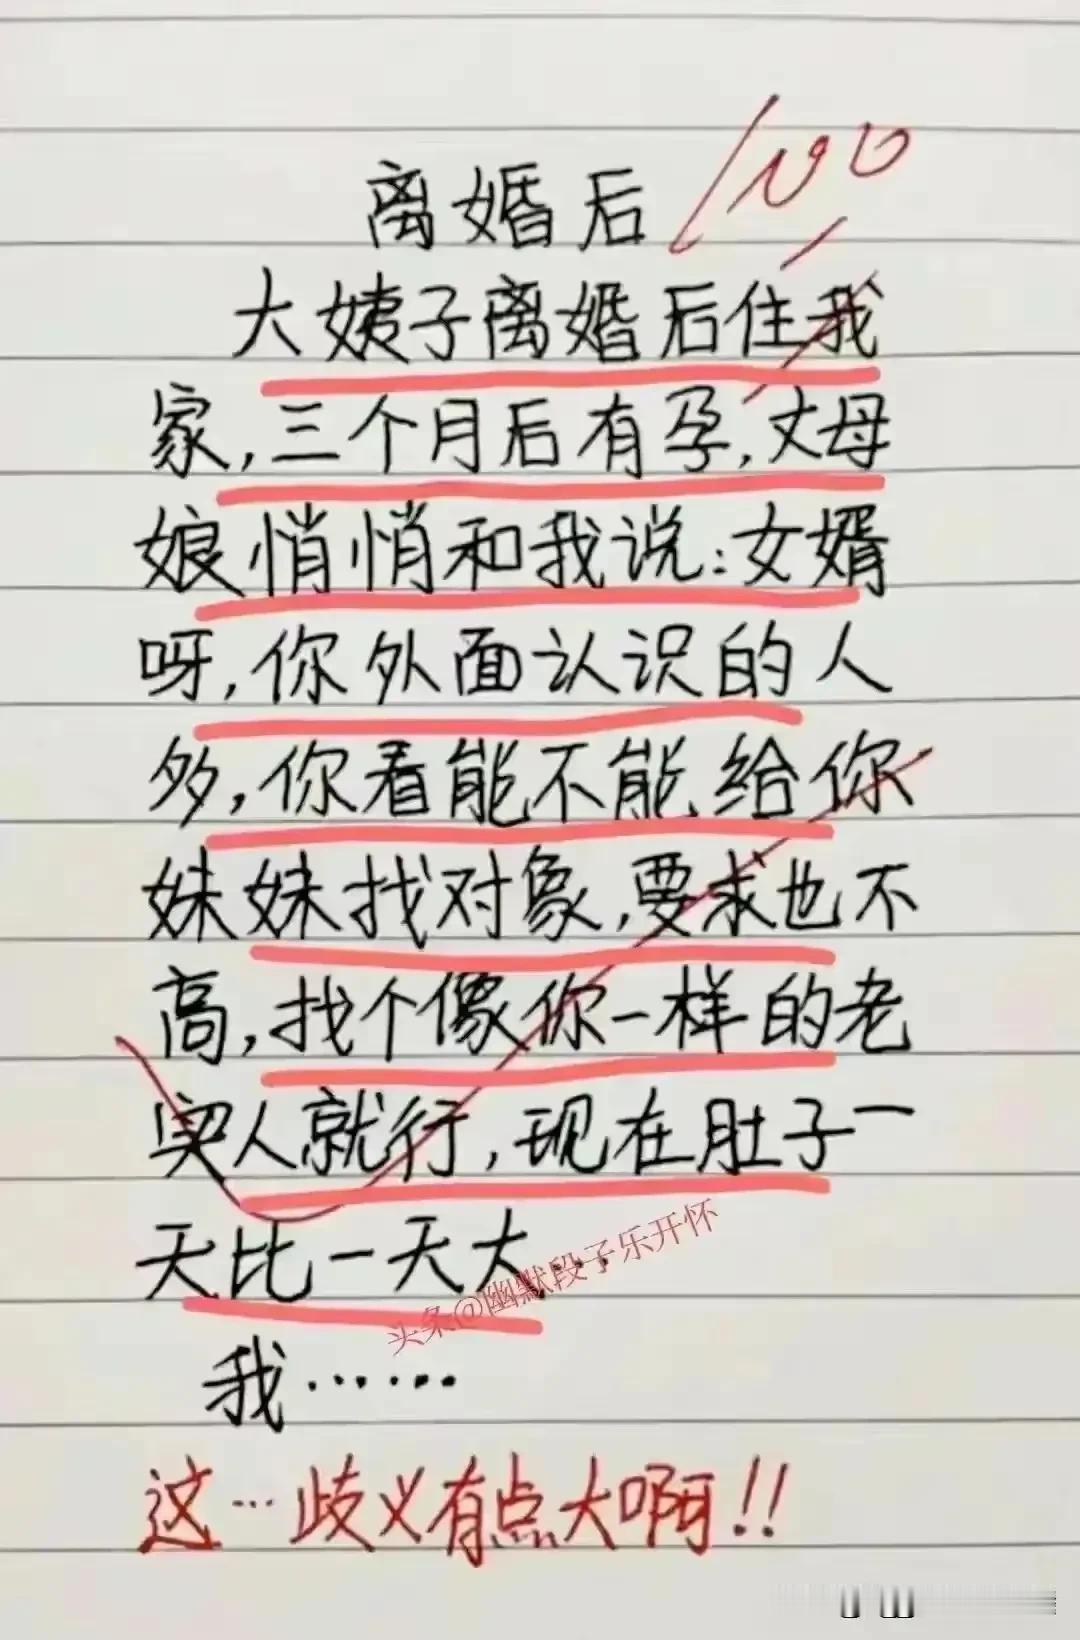 离婚后
100
大姨子离婚后住我
家,三个月后有孕,丈母
娘悄悄和我说:女婿
呀,你外面认识的人
多,你看能不能给你
妹妹找对象,要求也不
高,找个像你一样的老
实人就行,现在肚子一
天比一天大...
头条@幽默段子乐开怀
我……
这…歧义有点大啊!!